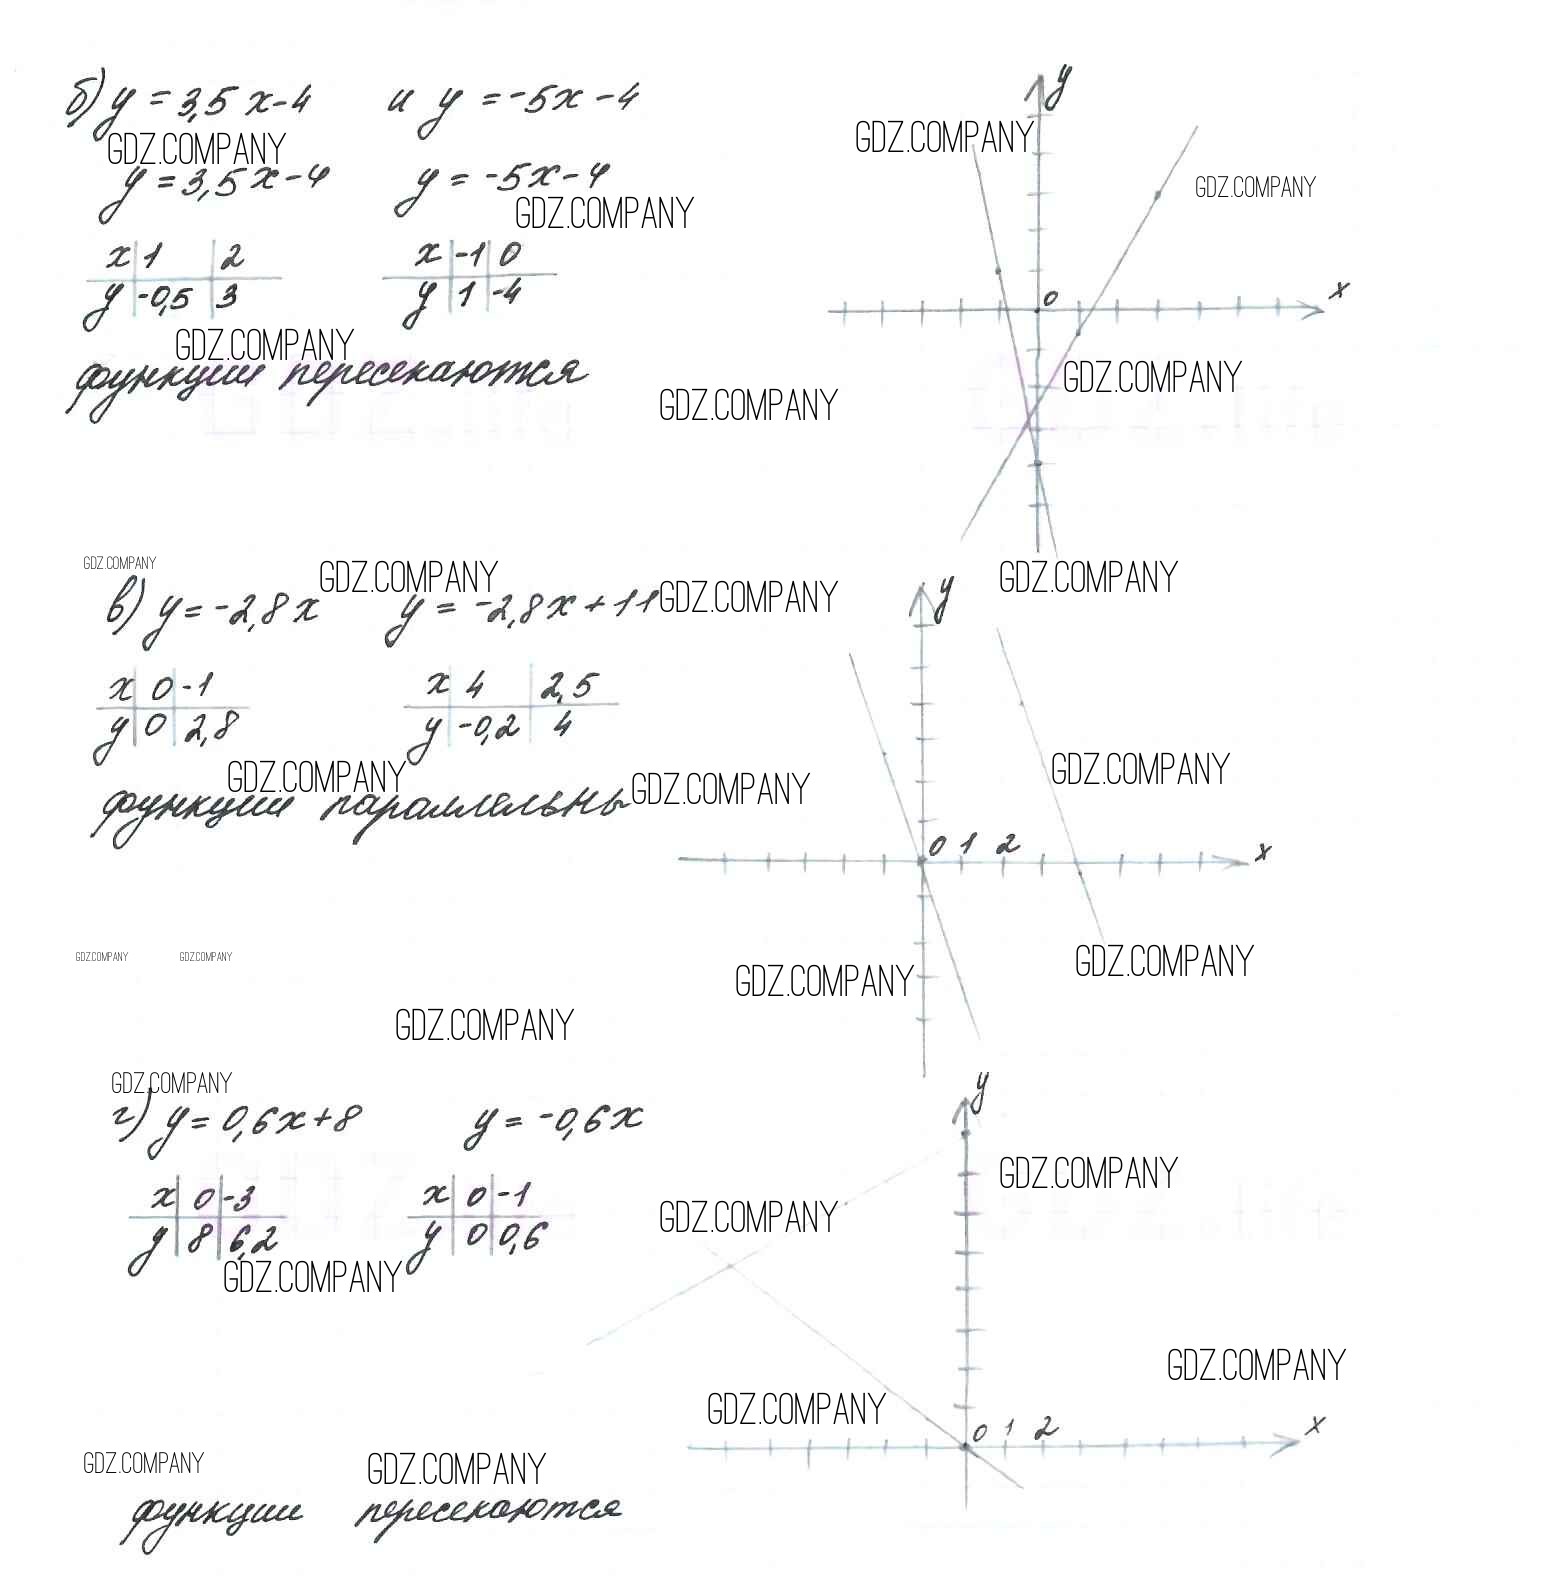 б) y = 3,5x-4 и y = -5x-4
GDZ.COMPANY
GDZ.COMPANY
y = 3,5x-4 y = -5x-4
GDZ.COMPANY
GDZ.COMPANY
x 1 2
y -0,5 3
x -1 0
y 1 -4
GDZ.COMPANY
функции пересекаются
GDZ.COMPANY
y
0
x
GDZ.COMPANY
GDZ.COMPANY
GDZ.COMPANY
GDZ.COMPANY
GDZ.COMPANY
в) y = -2,8x y = -2,8x+11
x 0 -1
y 0 2,8
x 4 2,5
y -0,2 4
GDZ.COMPANY
GDZ.COMPANY
GDZ.COMPANY
функции параллельны
y
0 1 2
x
GDZ.COMPANY
GDZ.COMPANY
GDZ.COMPANY
GDZ.COMPANY
GDZ.COMPANY
GDZ.COMPANY
г) y = 0,6x+8 y = -0,6x
x 0 -3
y 8 6,2
x 0 -1
y 0 0,6
GDZ.COMPANY
y
GDZ.COMPANY
GDZ.COMPANY
GDZ.COMPANY
GDZ.COMPANY
0 1 2
x
GDZ.COMPANY
GDZ.COMPANY
функции пересекаются